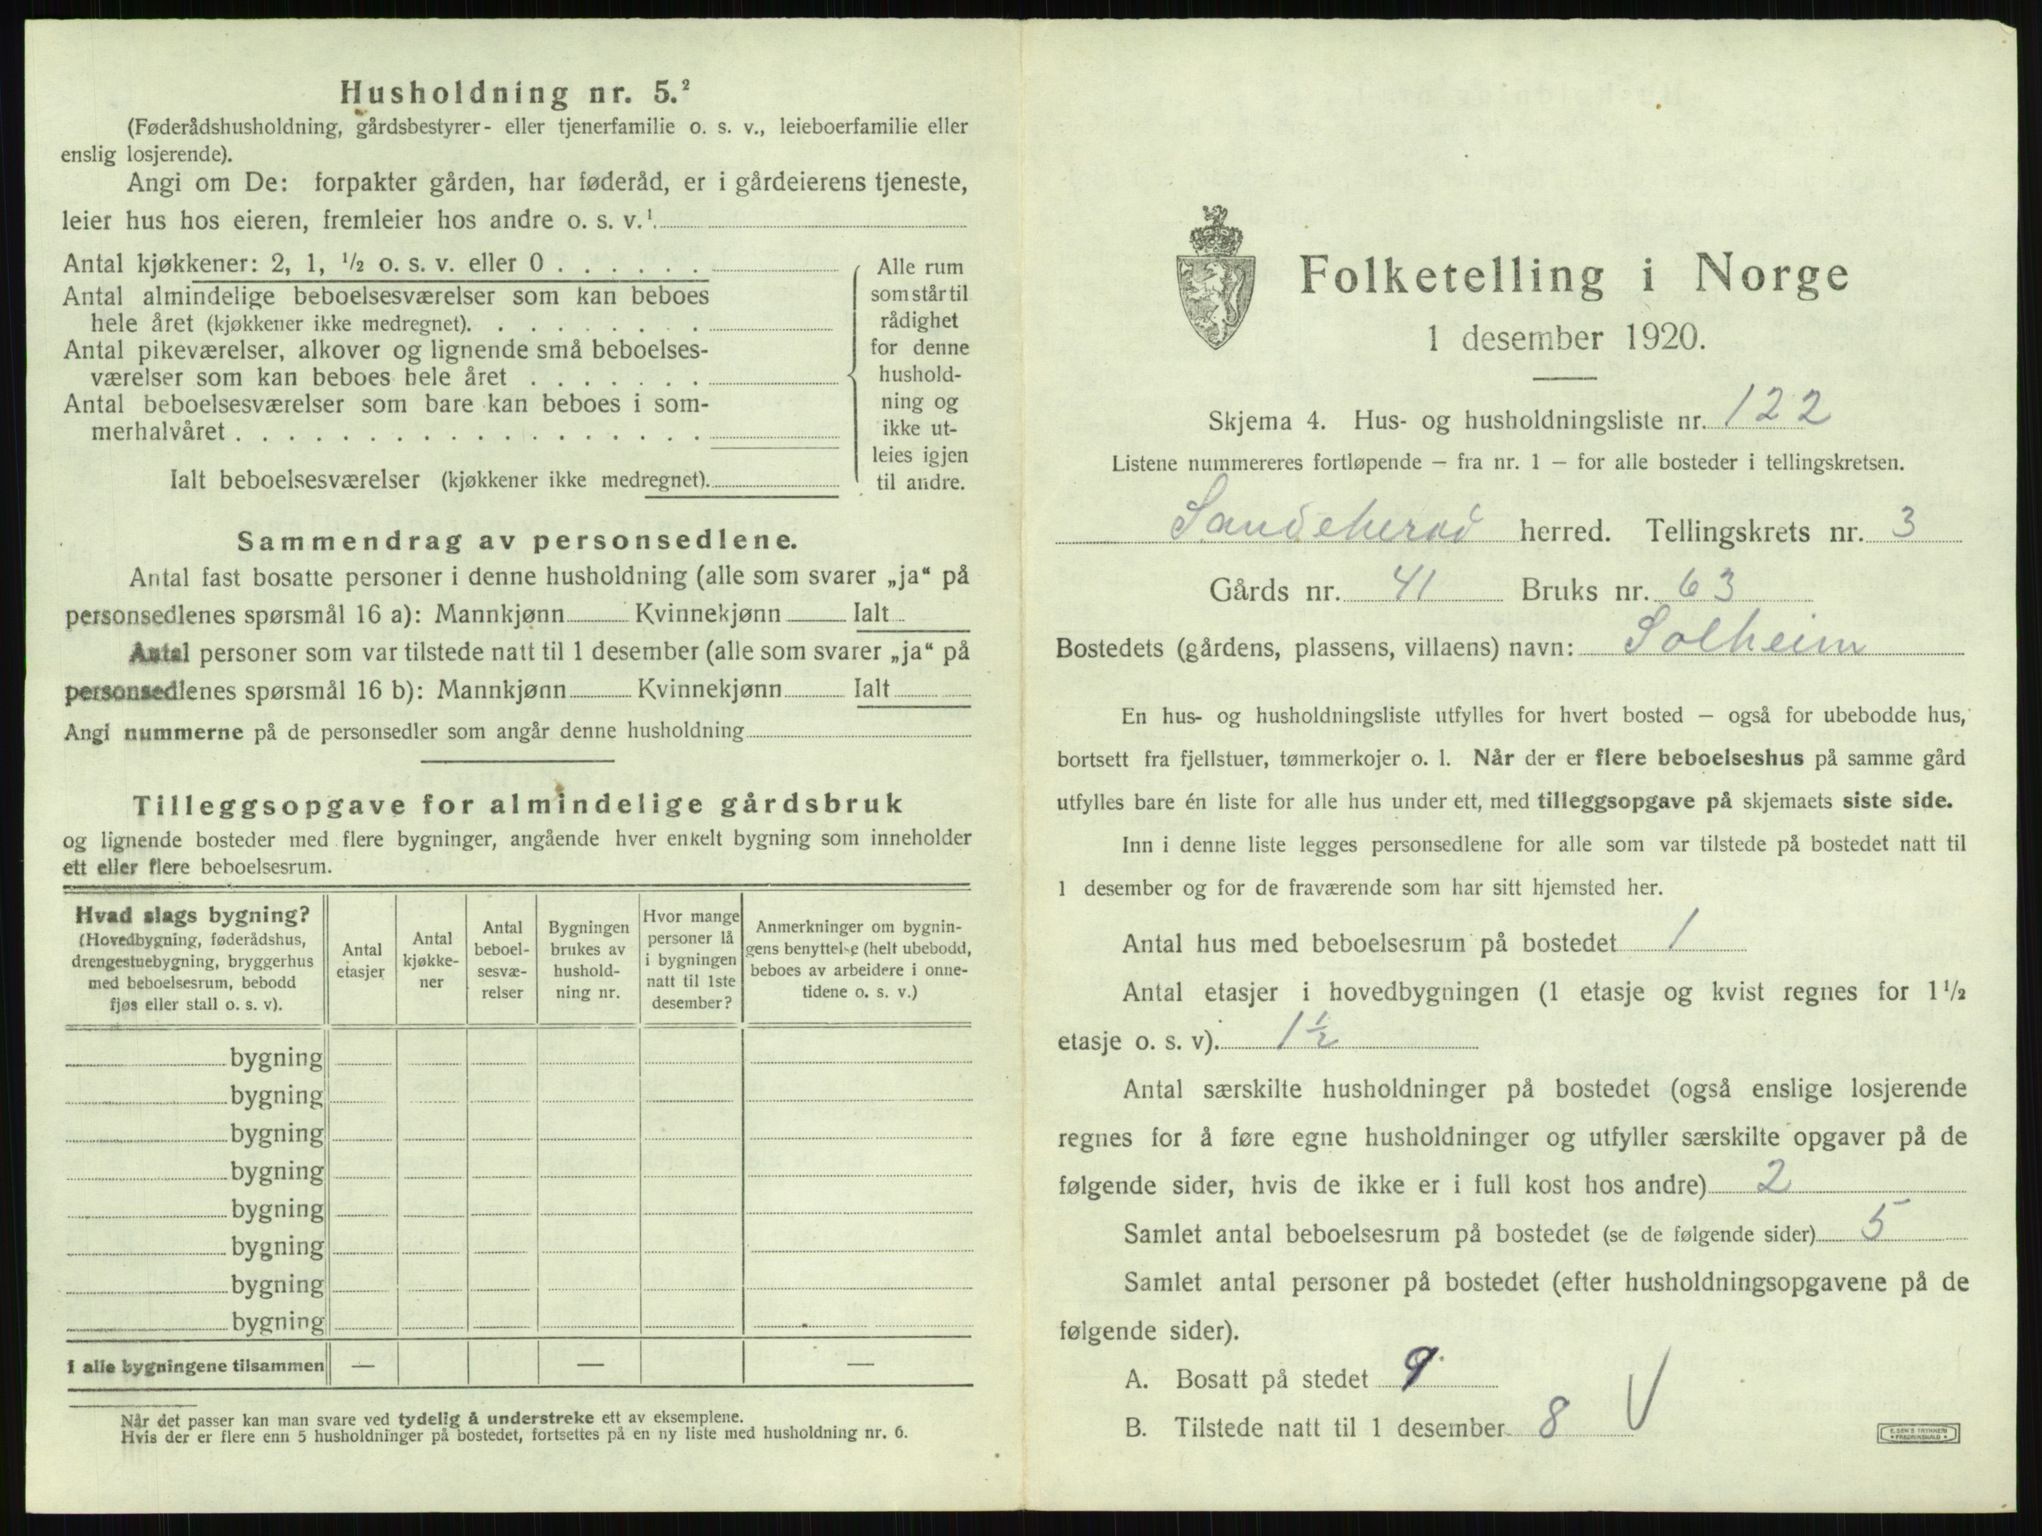 Husholdning nr. 5.²
(Føderådshusholdning, gårdsbestyrer- eller tjenerfamilie o. s. v., leieboerfamilie eller
enslig losjerende).
Angi om De: forpakter gården, har føderåd, er i gårdeierens tjeneste,
leier hus hos eieren, fremleier hos andre o. s. v.¹
Antal kjøkkener: 2, 1, ½ o. s. v. eller 0 . . . . . .
Antal almindelige beboelsesværelser som kan beboes
hele året (kjøkkener ikke medregnet). . . . . . . . .
Antal pikeværelser, alkover og lignende små beboelses-
værelser som kan beboes hele året . . . . . . .
Antal beboelsesværelser som bare kan beboes i som-
merhalvåret . . . . . . . . . . . . . . . . . .
Ialt beboelsesværelser (kjøkkener ikke medregnet).
Alle rum
som står til
rådighet
for denne
hushold-
ning og
ikke ut-
leies igjen
til andre.
Sammendrag av personsedlene.
Antal fast bosatte personer i denne husholdning (alle som svarer „ja“ på
personsedlenes spørsmål 16 a): Mannkjønn Kvinnekjønn Ialt
Antal personer som var tilstede natt til 1 desember (alle som svarer „ja“ på
personsedlenes spørsmål 16 b): Mannkjønn Kvinnekjønn Ialt
Angi nummerne på de personsedler som angår denne husholdning
Tilleggsopgave for almindelige gårdsbruk
og lignende bosteder med flere bygninger, angående hver enkelt bygning som inneholder
ett eller flere beboelsesrum.
Hvad slags bygning?
(Hovedbygning, føderådshus,
drengestuebygning, bryggerhus
med beboelsesrum, bebodd
fjøs eller stall o. s. v).
Antal
etasjer
Antal
kjøkke-
ner
Antal
beboel-
sesvæ-
relser
Bygningen
brukes av
hushold-
ning nr.
Hvor mange
personer lå
i bygningen
natt til 1ste
desember?
Anmerkninger om bygnin-
gens benyttelse (helt ubebodd,
beboes av arbeidere i onne-
tidene o. s. v.)
bygning
bygning
bygning
bygning
bygning
bygning
bygning
bygning
I alle bygningene tilsammen — — —
Når det passer kan man svare ved tydelig å understreke ett av eksemplene.
Hvis der er flere enn 5 husholdninger på bostedet, fortsettes på en ny liste med husholdning nr. 6.
Folketelling i Norge
1 desember 1920.
Skjema 4. Hus- og husholdningsliste nr. 122
Listene nummereres fortløpende – fra nr. 1 – for alle bosteder i tellingskretsen.
Sandeherad herred. Tellingskrets nr. 3
Gårds nr. 41 Bruks nr. 63
Bostedets (gårdens, plassens, villaens) navn: Solheim
En hus- og husholdningsliste utfylles for hvert bosted – også for ubebodde hus,
bortsett fra fjellstuer, tømmerkojer o. l. Når der er flere beboelseshus på samme gård
utfylles bare én liste for alle hus under ett, med tilleggsopgave på skjemaets siste side.
Inn i denne liste legges personsedlene for alle som var tilstede på bostedet natt til
1 desember og for de fraværende som har sitt hjemsted her.
Antal hus med beboelsesrum på bostedet 1
Antal etasjer i hovedbygningen (1 etasje og kvist regnes for 1½
etasje o. s. v). 1½
Antal særskilte husholdninger på bostedet (også enslige losjerende
regnes for å føre egne husholdninger og utfyller særskilte opgaver på de
følgende sider, hvis de ikke er i full kost hos andre) 2
Samlet antal beboelsesrum på bostedet (se de følgende sider) 5
Samlet antal personer på bostedet (efter husholdningsopgavene på de
følgende sider).
A. Bosatt på stedet 9
B. Tilstede natt til 1 desember 8 V